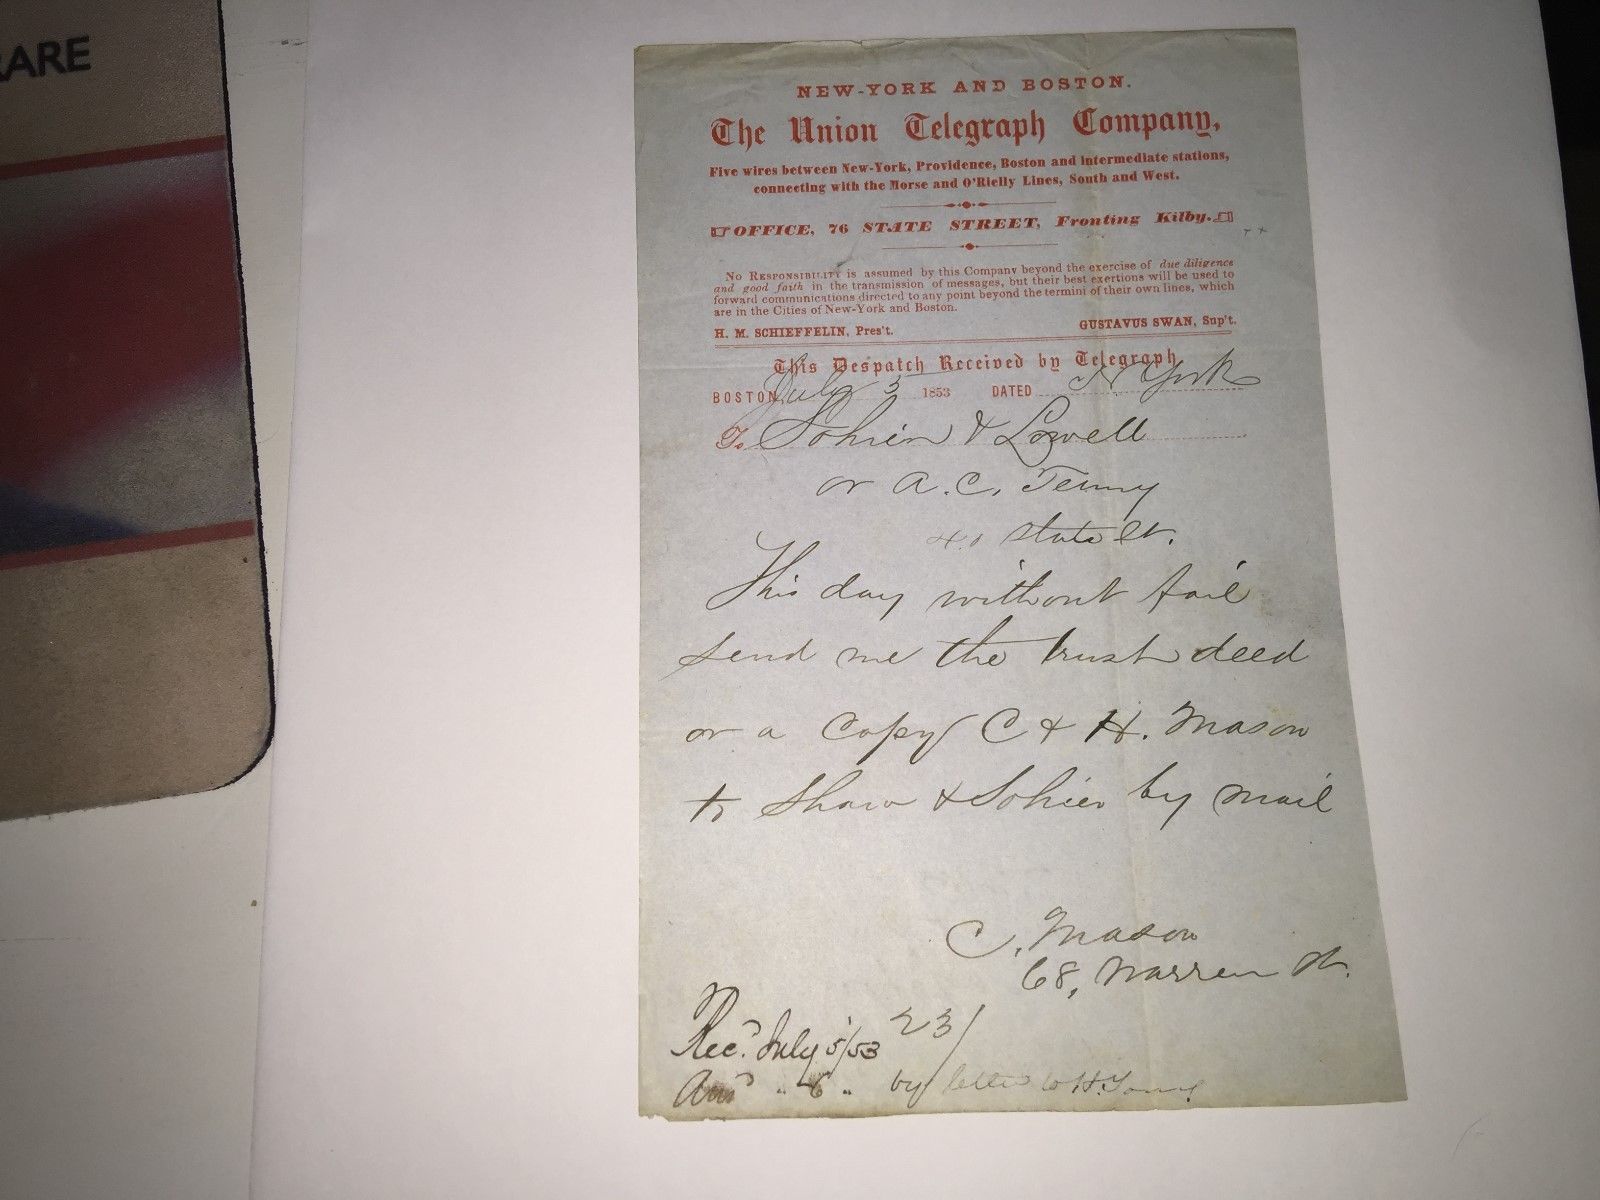 RARE
NEW-YORK AND BOSTON.
The Union Telegraph Company,
Five wires between New-York, Providence, Boston and intermediate stations,
connecting with the Morse and O'Rielly Lines, South and West.
OFFICE, 76 STATE STREET, Fronting Kilby.
No Responsibility is assumed by this Company beyond the exercise of due diligence
and good faith in the transmission of messages, but their best exertions will be used to
forward communications directed to any point beyond the termini of their own lines, which
are in the Cities of New-York and Boston.
H. M. SCHIEFFELIN, Pres't. GUSTAVUS SWAN, Sup't.
This Despatch Received by Telegraph
BOSTON July 5 1853 DATED N York
To Sohier & Lowell
or A. C.
40 State St.
This day without fail
send me the trust deed
or a Copy C & H. Mason
to Shaw & Sohier by mail
C. Mason
68, Warren St.
Rec'd July 5/53 23/
Ans'd " 6 " by letter to H.